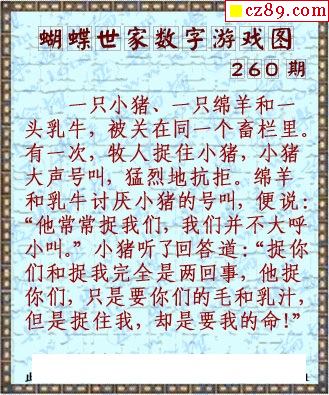 cz89.com
蝴蝶世家数字游戏图
260期
一只小猪、一只绵羊和一
头乳牛，被关在同一个畜栏里。
有一次，牧人捉住小猪，小猪
大声号叫，猛烈地抗拒。绵羊
和乳牛讨厌小猪的号叫，便说：
“他常常捉我们，我们并不大呼
小叫。”小猪听了回答道：“捉你
们和捉我完全是两回事，他捉
你们，只是要你们的毛和乳汁，
但是捉住我，却是要我的命！”